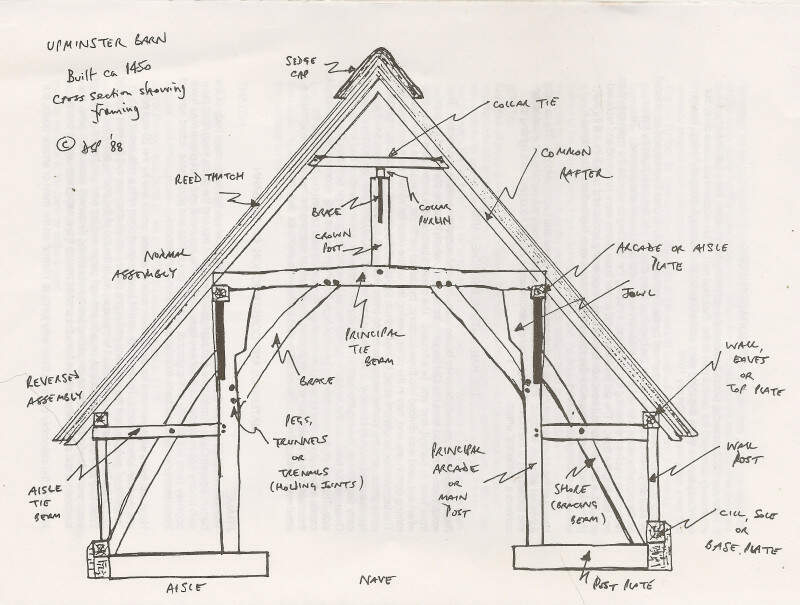 UPMINSTER BARN
Built ca 1450
Cross section showing
framing
© '88
SEDGE
CAP
COLLAR TIE
COMMON
RAFTER
REED THATCH
BRACE
COLLAR
PURLIN
CROWN
POST
NORMAL
ASSEMBLY
ARCADE OR AISLE
PLATE
JOWL
PRINCIPAL
TIE
BEAM
WALL,
EAVES
OR
TOP PLATE
BRACE
REVERSED
ASSEMBLY
PEGS,
TRUNNELS
OR
TRENAILS
(HOLDING JOINTS)
PRINCIPAL
ARCADE
OR
MAIN
POST
WALL
POST
AISLE
TIE
BEAM
SHORE
(BRACING
BEAM)
CILL, SOLE
OR
BASE PLATE
AISLE
NAVE
POST PLATE